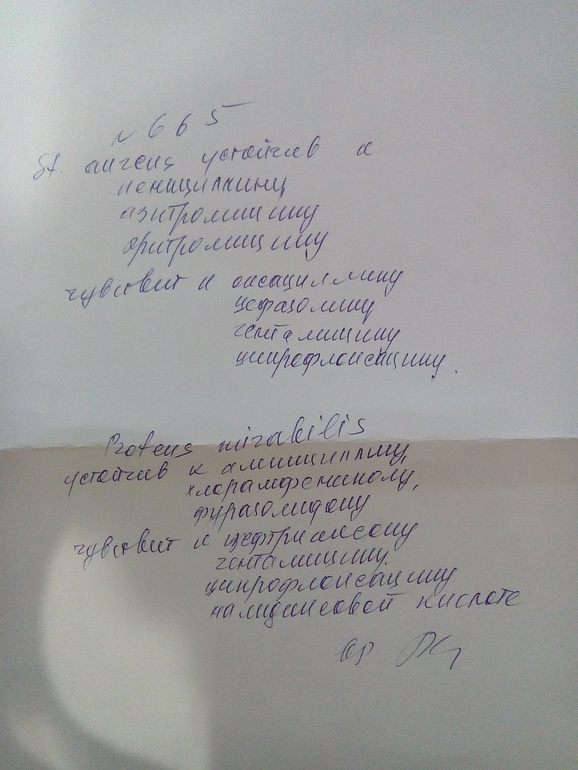 N 665
St. aureus устойчив к
пенициллину
азитромицину
эритромицину
чувствит к оксациллину
цефазолину
гентамицину
ципрофлоксацину.
Proteus mirabilis
устойчив к ампициллину,
хлорамфениколу,
фуразолидону
чувствит к цефтриаксону
гентамицину.
ципрофлоксацину
налидиксовой кислоте
вр